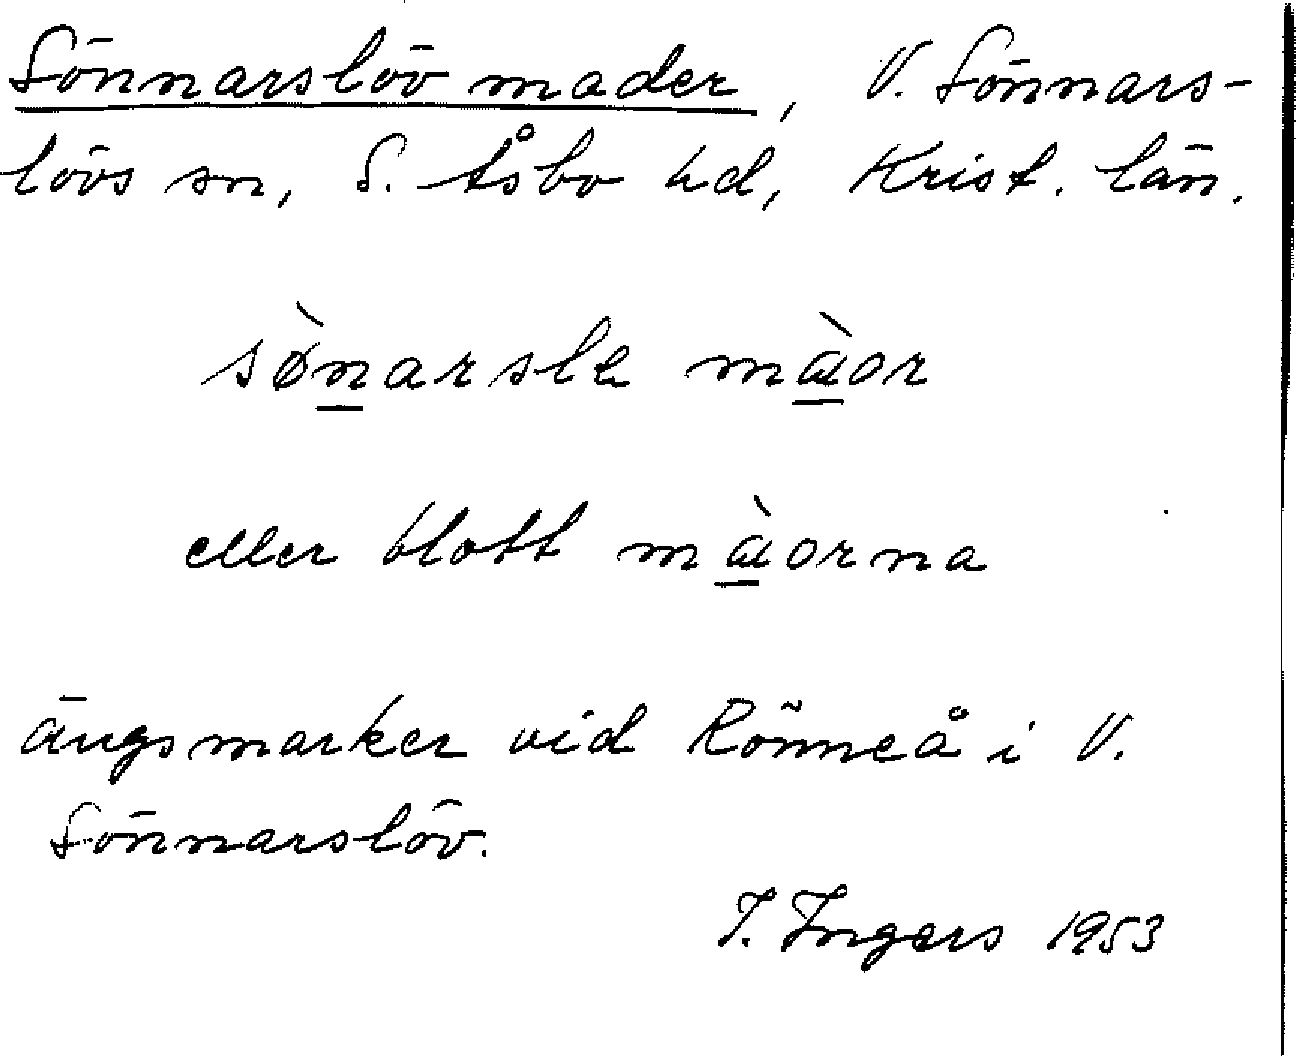 Sönnarslöv mader, V. Sönnars-
lövs sn, S. Åsbo hd, Krist. län.
sø̀narsle màor
eller blott màorna
ängsmarker vid Rönneå i V.
Sönnarslöv.
I. Ingers 1953